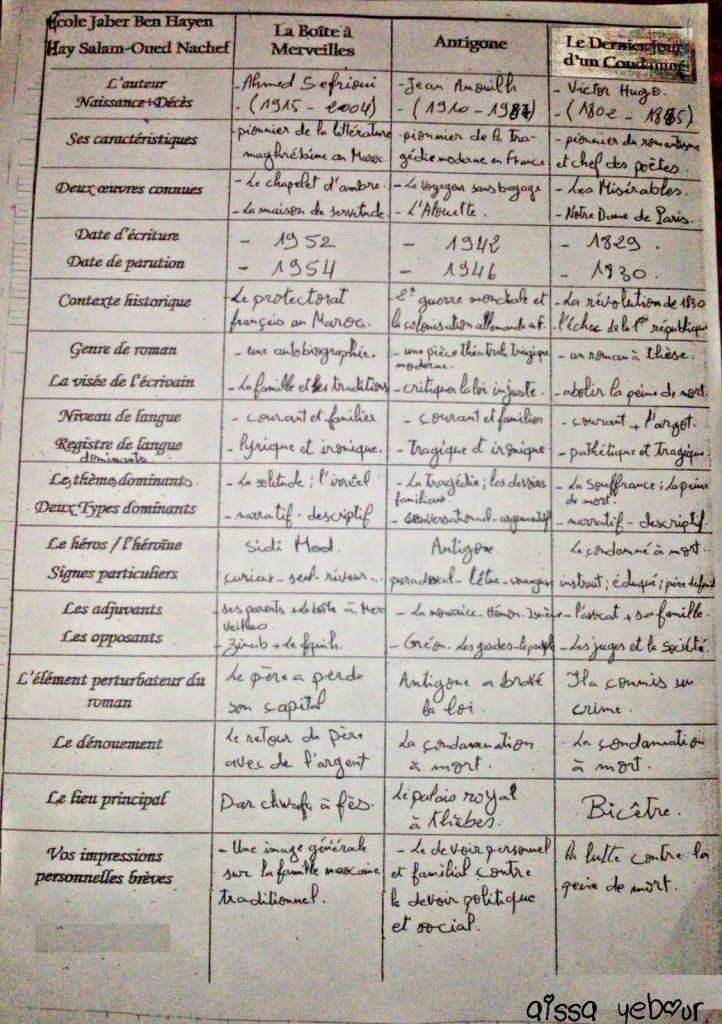 École Jaber Ben Hayen
Hay Salam-Oued Nachef
La Boîte à
Merveilles
Antigone
Le Dernier Jour
d'un Condamné
L'auteur
Naissance+Décès
- Ahmed Sefrioui
- (1915 - 2004)
- Jean Anouilh
- (1910 - 1987)
- Victor Hugo.
- (1802 - 1885)
Ses caractéristiques
- pionnier de la littérature
maghrébine au Maroc.
- pionnier de la tra-
gédie moderne en France
- pionnier du romantisme
et chef des poètes.
Deux œuvres connues
- Le chapelet d'ambre.
- La maison de servitude.
- Le voyageur sans bagage
- L'Alouette.
- Les Misérables.
- Notre Dame de Paris.
Date d'écriture
Date de parution
- 1952
- 1954
- 1942
- 1946
- 1829.
- 1830.
Contexte historique
Le protectorat
français au Maroc.
2e guerre mondiale et
la colonisation allemande
- La révolution de 1830
l'échec de la 1ère république
Genre de roman
La visée de l'écrivain
- une autobiographie.
- La famille et les traditions
- une pièce théatral tragique
moderne.
- critiquer la loi injuste.
- un roman à thèse.
- abolir la peine de mort.
Niveau de langue
Registre de langue
dominants
- courant et familier
- lyrique et ironique.
- courant et familier
- Tragique et ironique
- courant + l'argot.
- pathétique et tragique.
Les thème dominants
Deux Types dominants
- La solitude ; l'irréel
- narratif - descriptif
- La tragédie ; les devoirs
familiaux.
- conversationnel - argumentatif
- La Souffrance ; la peine
de mort.
- narratif - descriptif.
Le héros / l'héroïne
Signes particuliers
Sidi Med.
curieux - seul - rêveur...
Antigone.
paradoxal - têtue - courageuse
Le condamné à mort.
instruit ; éduqué ; père
Les adjuvants
Les opposants
- ses parents + la boîte à Mer
veilles
- Zineb + Le fquih.
- La nourrice - Hémon - Ismène
- Créon - Les gardes - le peuple
- l'avocat + sa famille.
- Les juges et la Société
L'élément perturbateur du
roman
Le père a perdu
son capital
Antigone a bravé
la loi.
Il a commis un
crime.
Le dénouement
Le retour du père
avec de l'argent
La condamnation
à mort.
La condamnation
à mort.
Le lieu principal
Dar chwafa à fès.
Le palais royal
à thèbes.
Bicêtre.
Vos impressions
personnelles brèves
- Une image générale
sur la famille marocaine
traditionnel.
- Le devoir personnel
et familial contre
le devoir politique
et social.
la lutte contre la
peine de mort.
aissa yebour